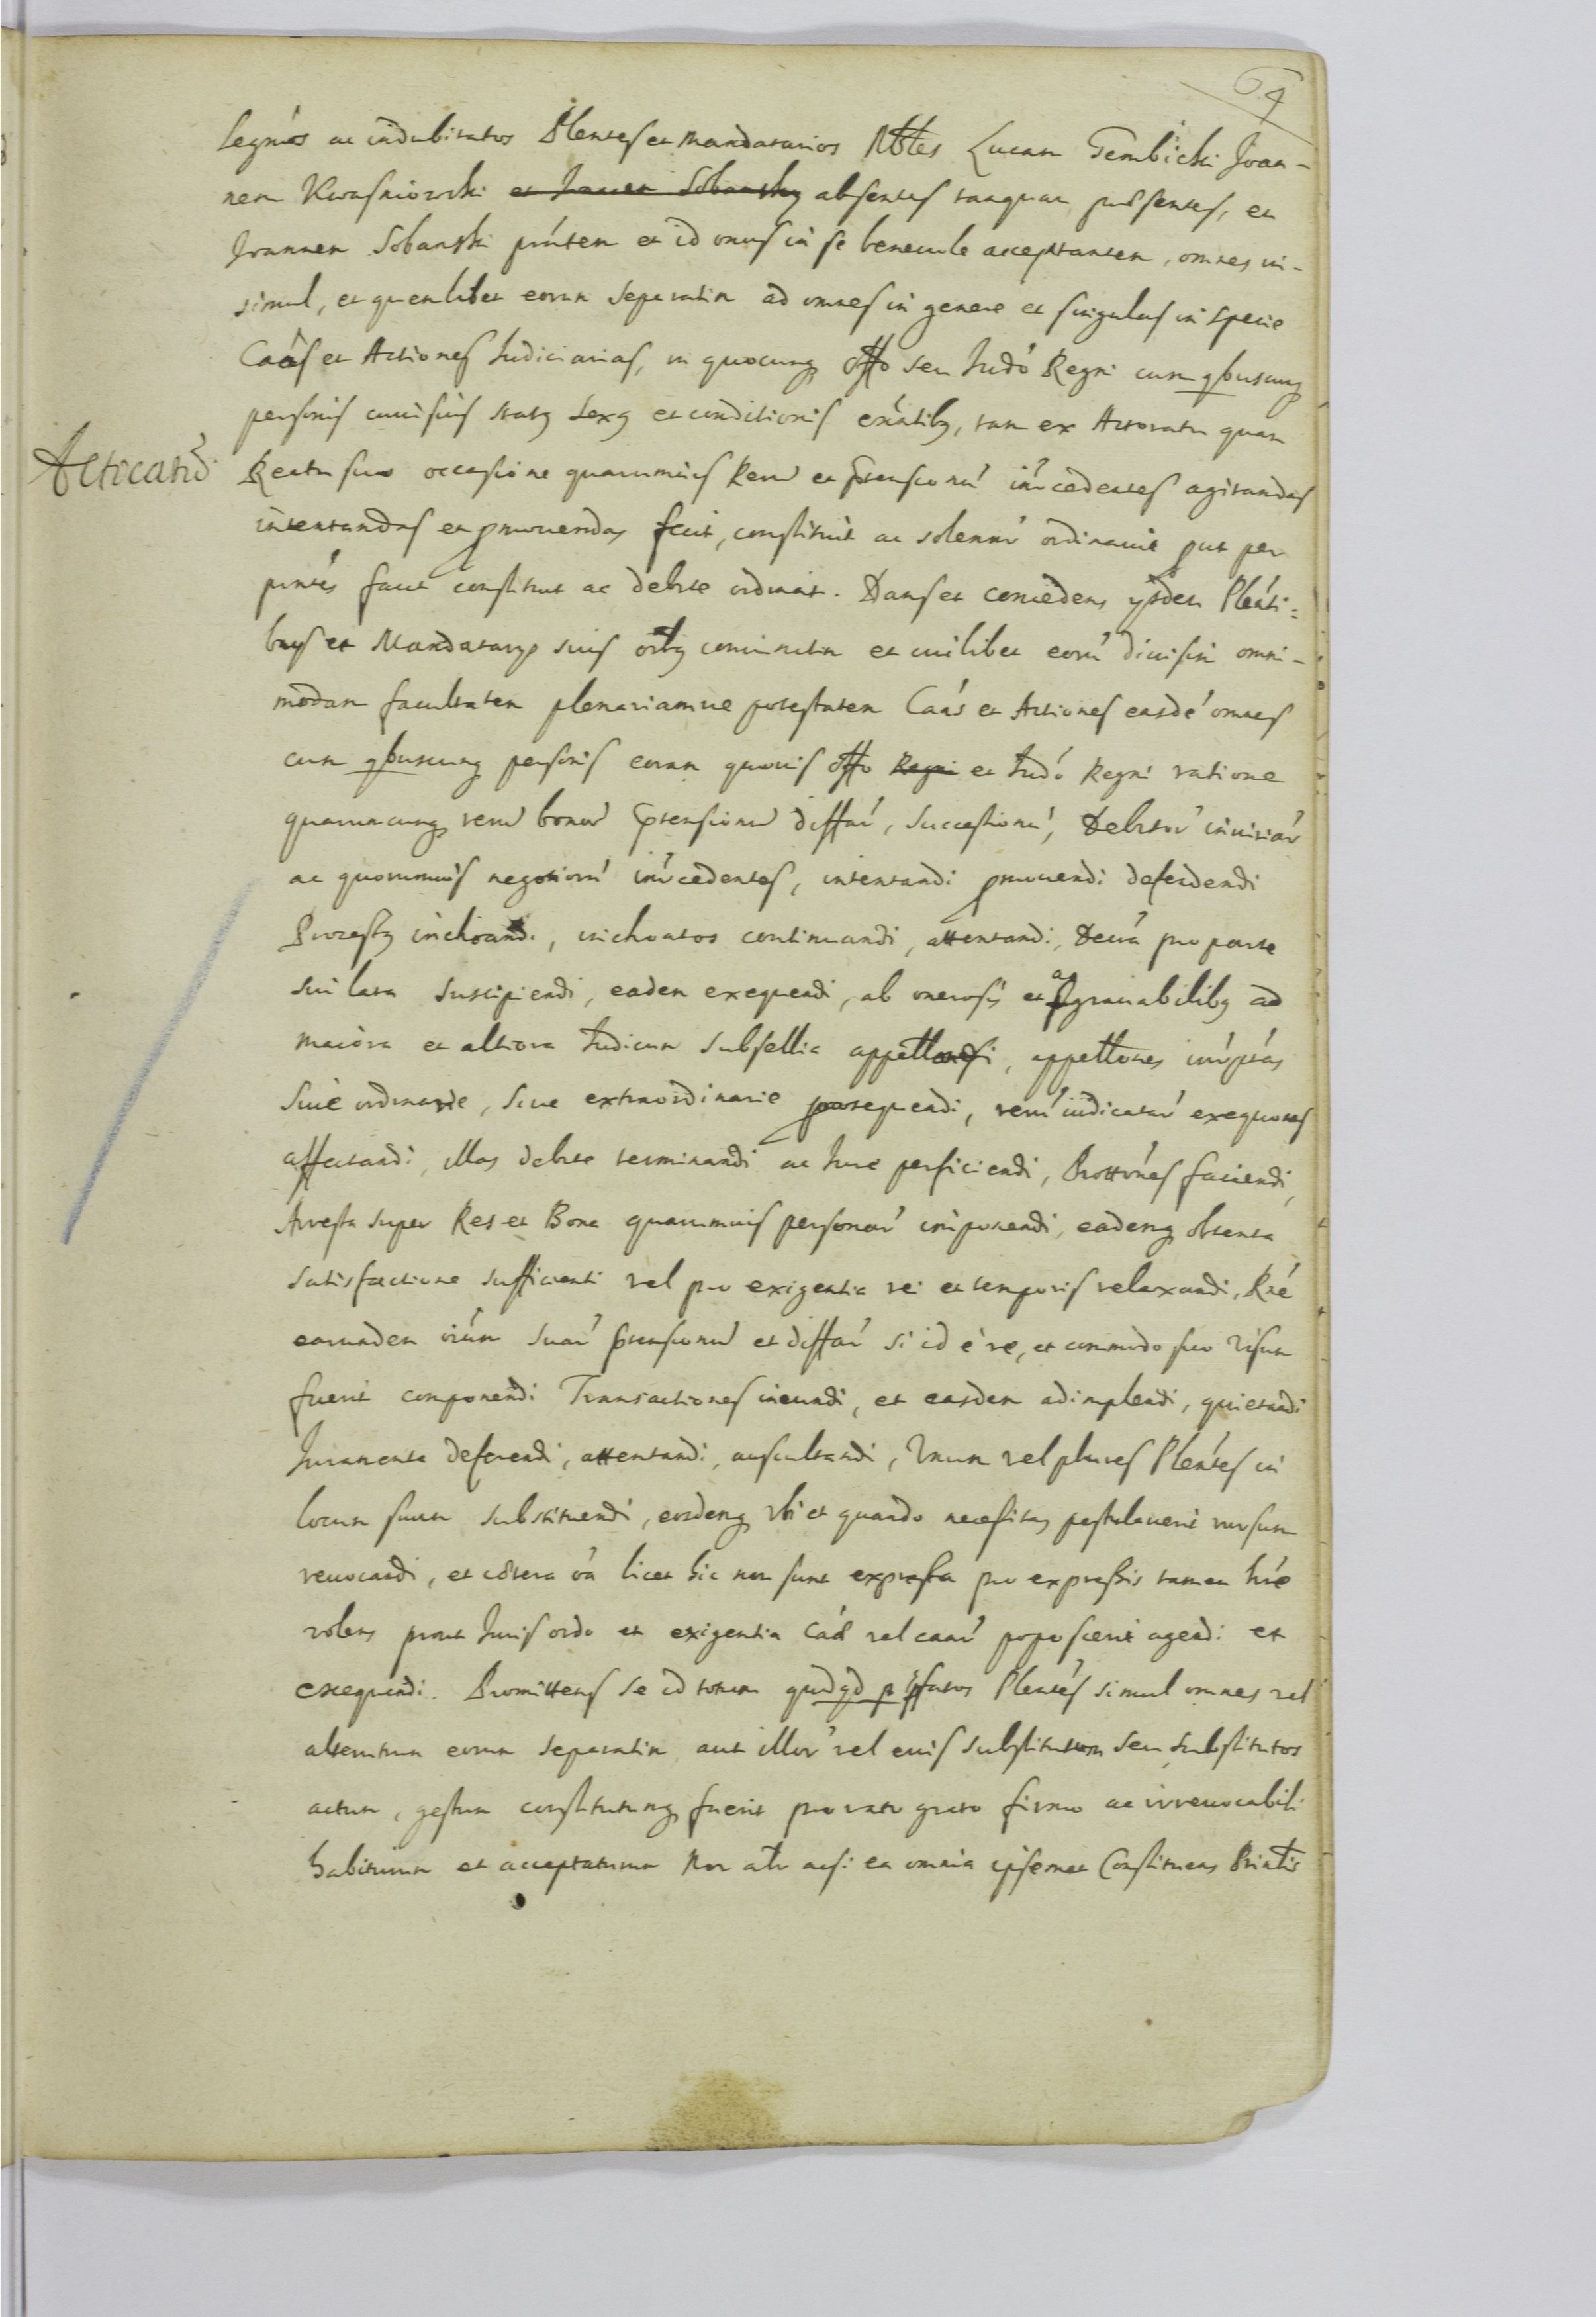 64
Legnos ac indubitatos Plentes et Mandatarios Nbles Lucam Gembicki Joan-
nem Kwasniowski et Joannem Sobansky absentes tanquam præsentes, et
Joannem Sobanski pntem et id onus in se benevole acceptantem, omnes in-
simul, et quemlibet eorum separatim ad omnes in genere et singulas in specie
Caas et Actiones Judiciarias, in quocunq offo seu Judo Regni cum qbuscunq
personis cuiusuis statq sexq et conditionis exntibq, tam ex Actoratu quam
Acticand
Reatu suo occasione quarumuis Reru et prtensionu inrcedentes agitandas
intentandas et promouendas fecit, constituit ac solennr ordinauit put per
pntes facit constituit ac debite ordinat. Dans et concedens ysdem Plenti=
bus et Mandatarys suis oibq coniunctim et cuilibet eoru diuisim omni-
modam facultatem plenariamue potestatem Caas et Actiones easde omnes
cum qbuscunq personis coram quouis offo Regni et Judo Regni ratione
quarumcunq reru bonor prtensionu diffar, successionu, Debitor iniuriar
ac quorumuis negotioru inrcedentes, intentandi promouendi defendendi
Processq inchoandi, inchoatos continuandi, attentandi, Decra pro parte
sui lata suscipiendi, eadem exequendi, ab onerosis et aggrauabilibq ad
maiora et altiora Judicum subsellia appellandi, appellones inrptas
siue ordinarie, siue extraordinarie prosequendi, reru iudicatar exequones
affectandi, illas debite terminandi ac Jure perficiendi, Prottones faciendi,
Arresta super Res et Bona quarumuis personar imponendi, eademq obtenta
satisfactione sufficienti vel pro exigentia rei et temporis relaxandi, Rne
earundem oium suar prtensionu et diffar si id e re, et commodo suo visum
fuerit componendi Transactiones ineundi, et easdem adimplendi, quietandi
Juramenta deferendi, attentandi, auscultandi, Unum vel plures Plentes in
locum suum substituendi, eosdemq vbi et quando necessitas postulauerit rursum
reuocandi, et cætera oa licet hic non sunt expressa pro expressis tamen hre
volens prout Juris ordo et exigentia Caæ vel caar poposcerit agendi et
exequendi. Promittens se id totum quidqd p præfatos Plentes simul omnes vel
alterutrum eorum separatim aut illor vel eius substitutum seu substitutos
actum, gestum constitutumq fuerit pro rato grato firmo ac irreuocabili
habiturum et acceptaturum Non atr acsi ea omnia ipsemet Constituens Prinalis